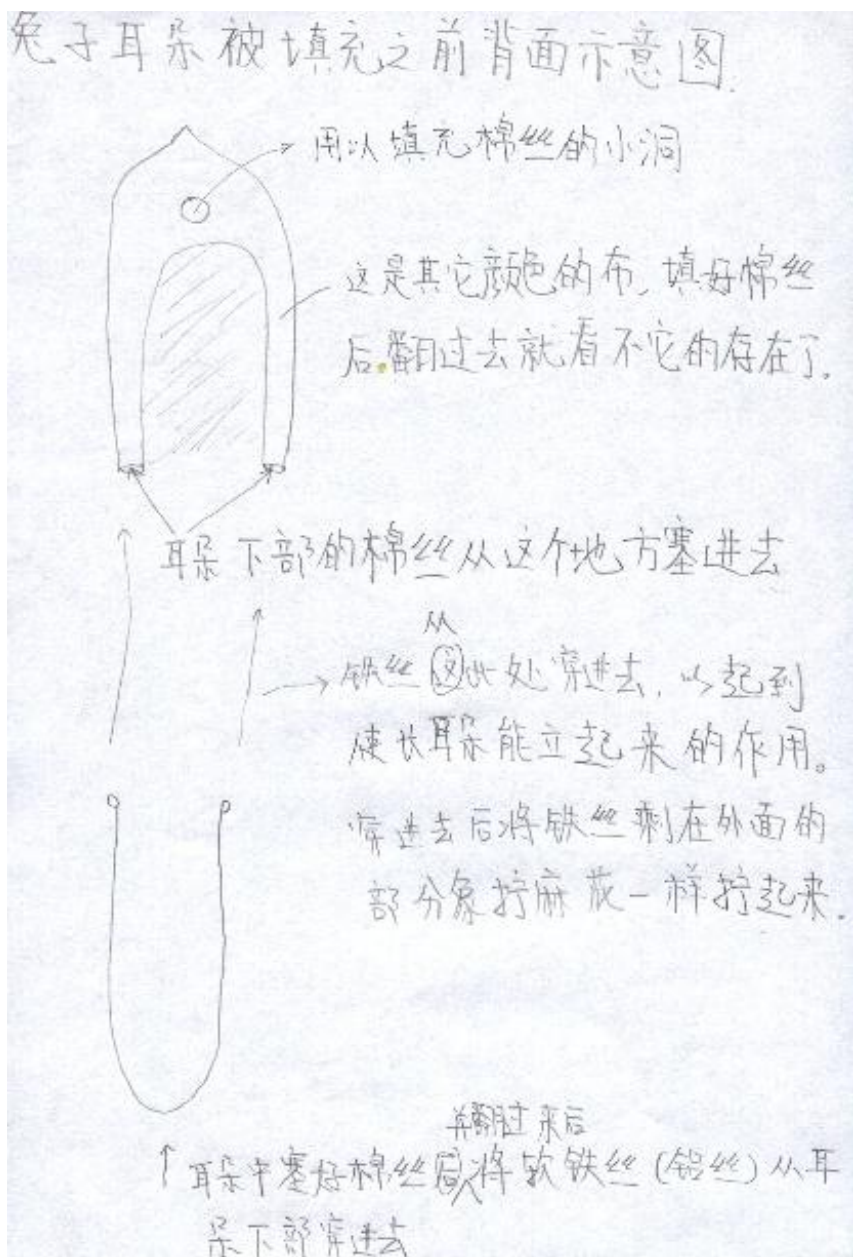 兔子耳朵被填充之前背面示意图.
用以填充棉丝的小洞
这是其它颜色的布,填好棉丝
后翻过去就看不它的存在了.
耳朵下部的棉丝从这个地方塞进去
从
铁丝 此处穿进去,以起到
使长耳朵能立起来的作用。
穿进去后将铁丝剩在外面的
部分象拧麻花一样拧起来.
并翻过来后
耳朵中塞好棉丝 将软铁丝(铝丝)从耳
朵下部穿进去